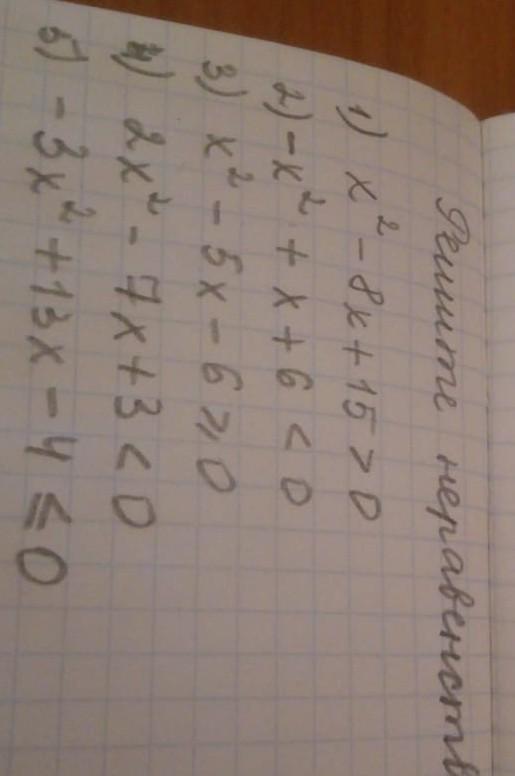 Решите неравенств
1) x² - 8x + 15 > 0
2) -x² + x + 6 < 0
3) x² - 5x - 6 ⩾ 0
4) 2x² - 7x + 3 < 0
5) -3x² + 13x - 4 ≤ 0